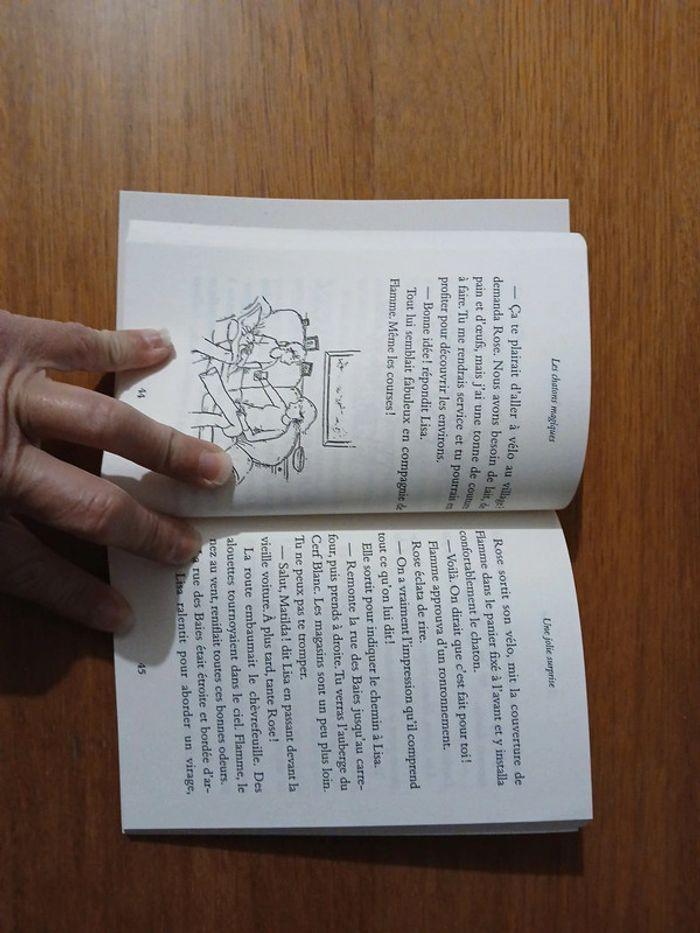 Les chatons magiques
— Ça te plairait d'aller à vélo au village?
demanda Rose. Nous avons besoin de lait, de
pain et d'œufs, mais j'ai une tonne de
à faire. Tu me rendrais service et tu pourrais en
profiter pour découvrir les environs.
— Bonne idée! répondit Lisa.
Tout lui semblait fabuleux en compagnie de
Flamme. Même les courses!
44
Une jolie surprise
Rose sortit son vélo, mit la couverture de
Flamme dans le panier fixé à l'avant et y installa
confortablement le chaton.
— Voilà. On dirait que c'est fait pour toi!
Flamme approuva d'un ronronnement.
Rose éclata de rire.
— On a vraiment l'impression qu'il comprend
tout ce qu'on lui dit!
Elle sortit pour indiquer le chemin à Lisa.
— Remonte la rue des Baies jusqu'au carre-
four, puis prends à droite. Tu verras l'auberge du
Cerf Blanc. Les magasins sont un peu plus loin.
Tu ne peux pas te tromper.
— Salut, Matilda! dit Lisa en passant devant la
vieille voiture. À plus tard, tante Rose!
La route embaumait le chèvrefeuille. Des
alouettes tournoyaient dans le ciel. Flamme, le
nez au vent, reniflait toutes ces bonnes odeurs.
La rue des Baies était étroite et bordée d'ar-
Lisa ralentit pour aborder un virage,
45